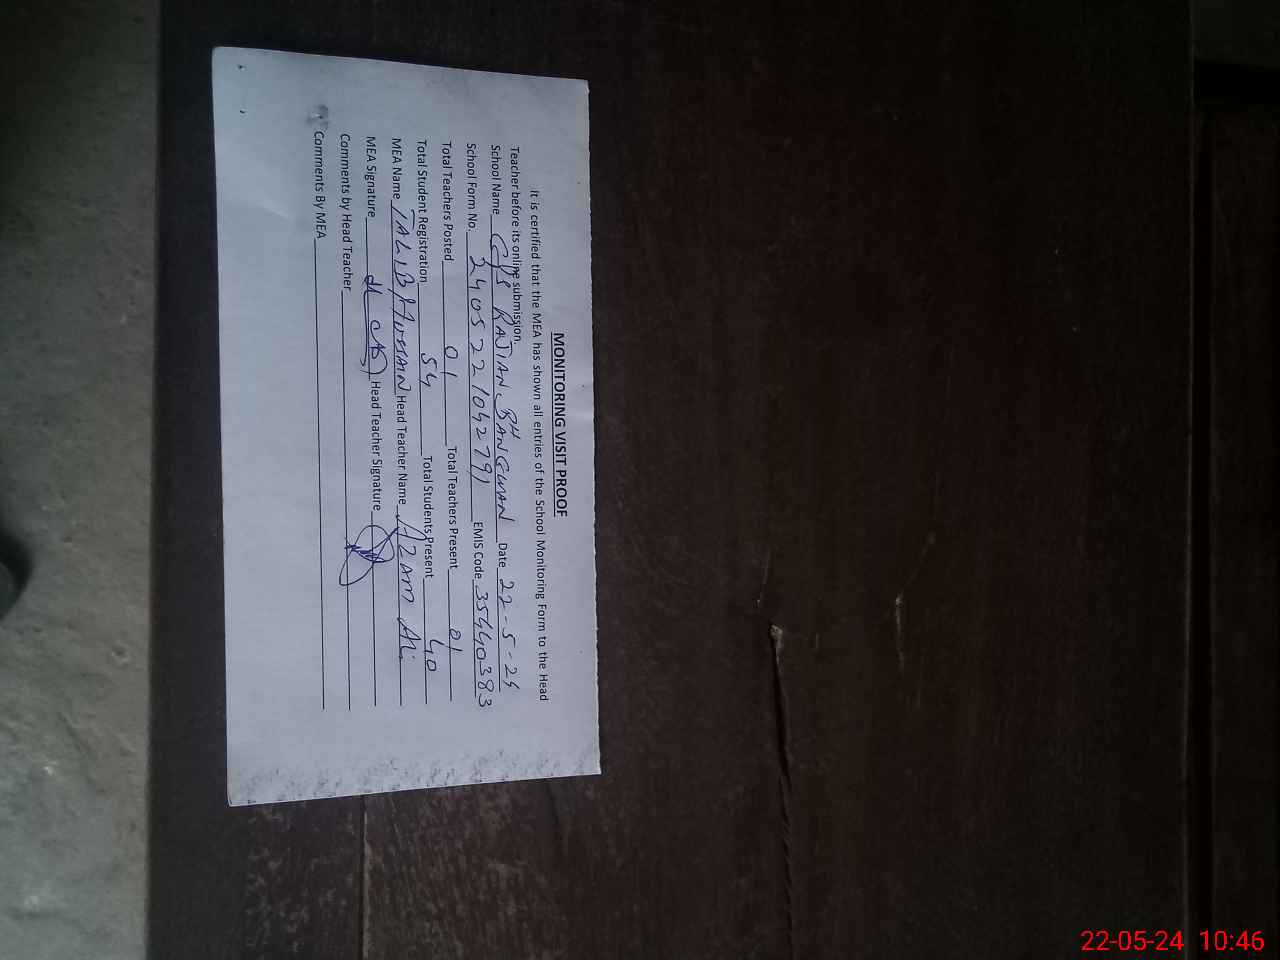 MONITORING VISIT PROOF
It is certified that the MEA has shown all entries of the School Monitoring Form to the Head
Teacher before its online submission.
School Name GPS RAJIAN BHANGWAN Date 22-5-24
School Form No. 240522104279) EMIS Code 35440383
Total Teachers Posted 01 Total Teachers Present 01
Total Student Registration 54 Total Students Present 40
MEA Name TALIB HUSSAIN Head Teacher Name AZAM Ali
MEA Signature Head Teacher Signature
Comments by Head Teacher
Comments By MEA
22-05-24 10:46